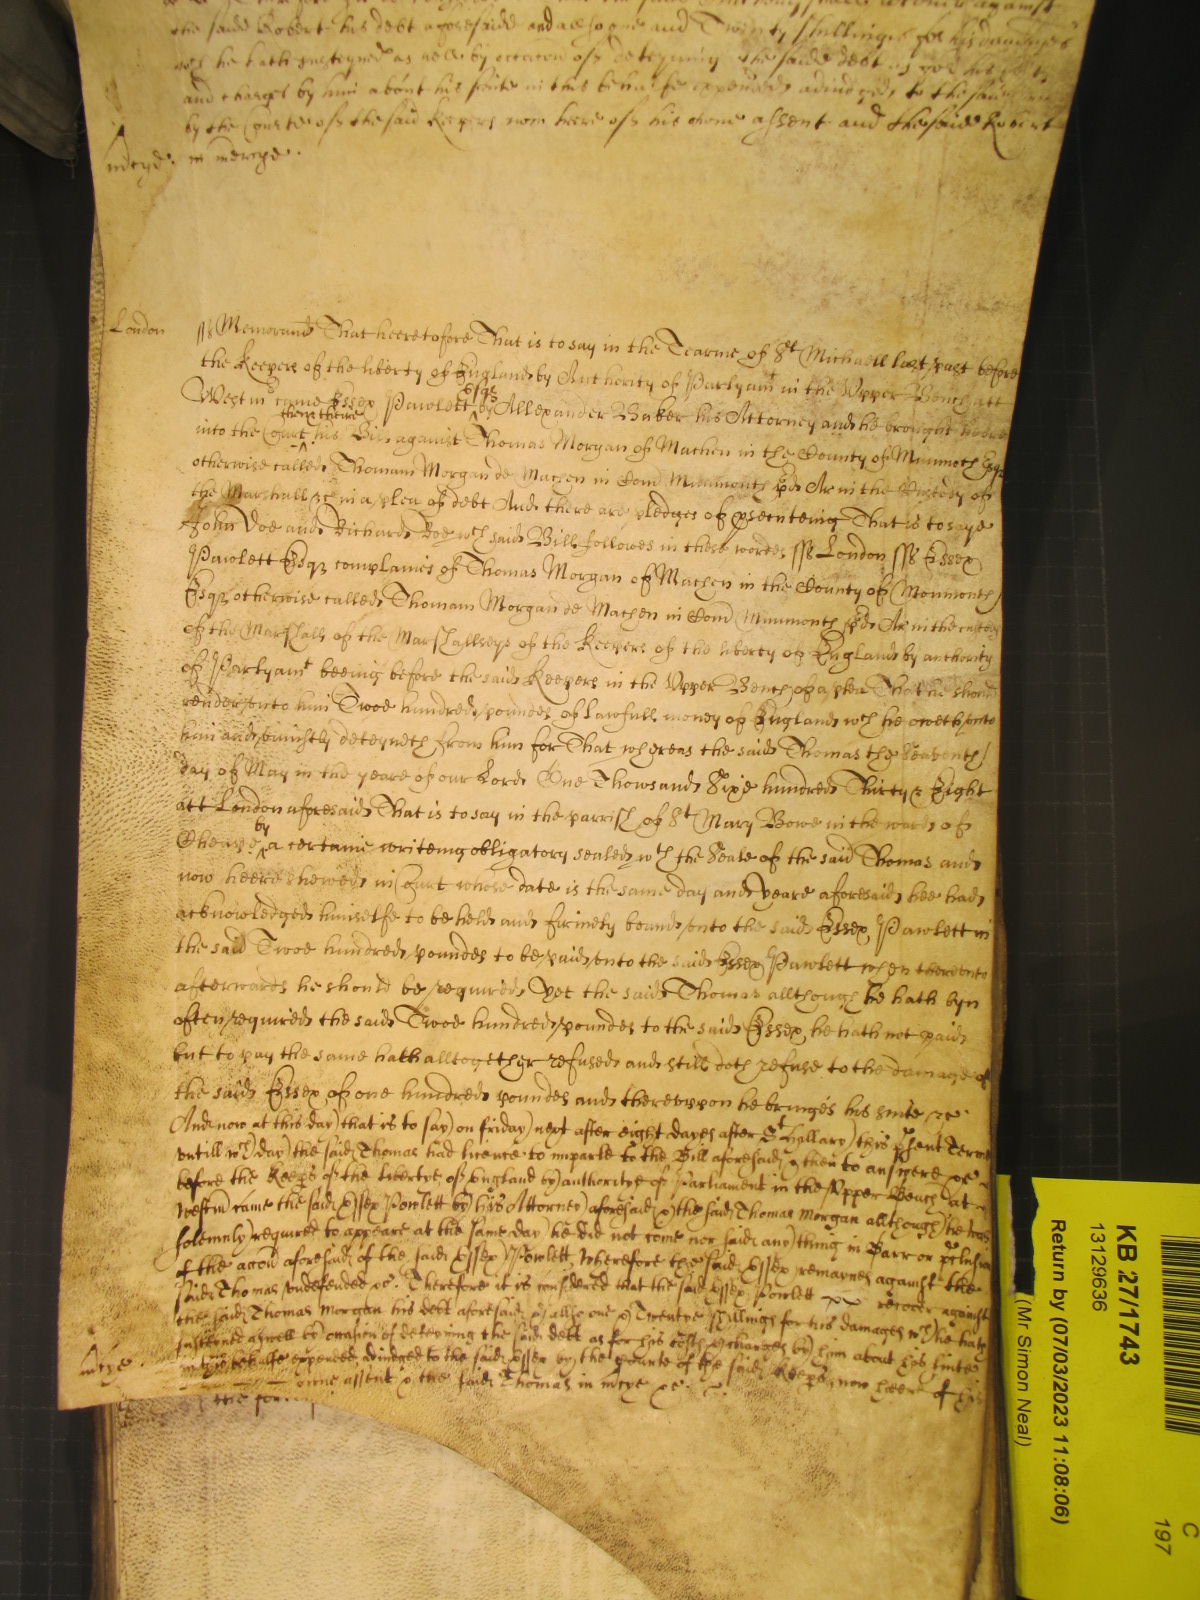 the said Robert his debt aforesaid and allso one and Twenty shillings for his damages
wch he hath susteyned as well by occasion of deteyning the said debt as for his costs
and charges by him about his suite in this behalfe expended adiudged to the said
by the Courte of the said Keepers now heere of his owne assent and the said Robert
mcyd: in mercye.
London
ss Memorand That heeretofore That is to say in the Tearme of St Michaell last past before
the Keepers of the liberty of England by Authority of Parlyamt in the Upper Bench att
Westmr came Essex Pawlett Esqr by Allexander Baker his Attorney and he brought heere
into the Court then there his Bill against Thomas Morgan of Machen in the County of Munmoth Esqr
otherwise called Thomam Morgan de Machen in Com Munmoth pd Ar in the Custody of
the Marshall &c in a plea of debt And there are pledges of psecuteing That is to saye
John Doe and Richard Roe wch said Bill followes in these wordes ss London ss Essex
Pawlett Esqr complaines of Thomas Morgan of Machen in the County of Monmouth
Esqr otherwise called Thomam Morgan de Machen in Com Munmouth pd Ar in the custody
of the Marshall of the Marshallseye of the Keepers of the liberty of England by authority
of Parlyamt beeing before the said Keepers in the Upper Bench of a plea That he should
render unto him Twoe hundred poundes of lawfull money of England wch he oweth unto
him and uniustly deteyneth from him for That whereas the said Thomas the Seaventh
day of May in the yeare of our Lord One Thowsand Sixe hundred Thirty & Eight
att London aforesaid That is to say in the parrish of St Mary Bowe in the ward of
Cheape by a certaine writeing obligatory sealed wth the Seale of the said Thomas and
now heere shewed in Court whose date is the same day and yeare aforesaid hee had
acknowledged himselfe to be held and firmely bound unto the said Essex Pawlett in
the said Twoe hundred poundes to be paid unto the said Essex Pawlett when thereunto
afterwards he should be required Yet the said Thomas allthough he hath byn
often required the said Twoe hundred poundes to the said Essex he hath not paid
but to pay the same hath alltogether refused and still doth refuse to the damage of
the said Essex of one hundred poundes and thereuppon he bringes his suite &c
And now at this day that is to say on friday next after eight dayes after St hillary this psent Terme
untill wch day the said Thomas had licence to imparle to the Bill aforesaid & then to answere &c
before the Keeps of the libertye of England by authoritye of Parliament in the Upper Bench at
Westm came the said Essex Powlett by his Attorney aforesaid & the said Thomas Morgan allthough he was
solemnly required to appeare at the same day he did not come nor said any thing in Barr or pclusion
of the accon aforesaid of the said Essex Powlett Wherefore the said Essex remaynes against the
said Thomas undefended &c. Therefore it is considered that the said Essex Powlett recover against
the said Thomas Morgan his debt aforesaid & allso one & Twentye shillings for his damages wch he hath
susteyned aswell by occasion of deteyning the said debt as for his costs & charges by him about his suite
in this behalfe expended adiudged to the said Essex by the Courte of the said Keeps now heere of his
mcye. owne assent & the said Thomas in mcye &c.
KB 27/1743
13129636
Return by (07/03/2023 11:08:06)
(Mr Simon Neal)
C
197